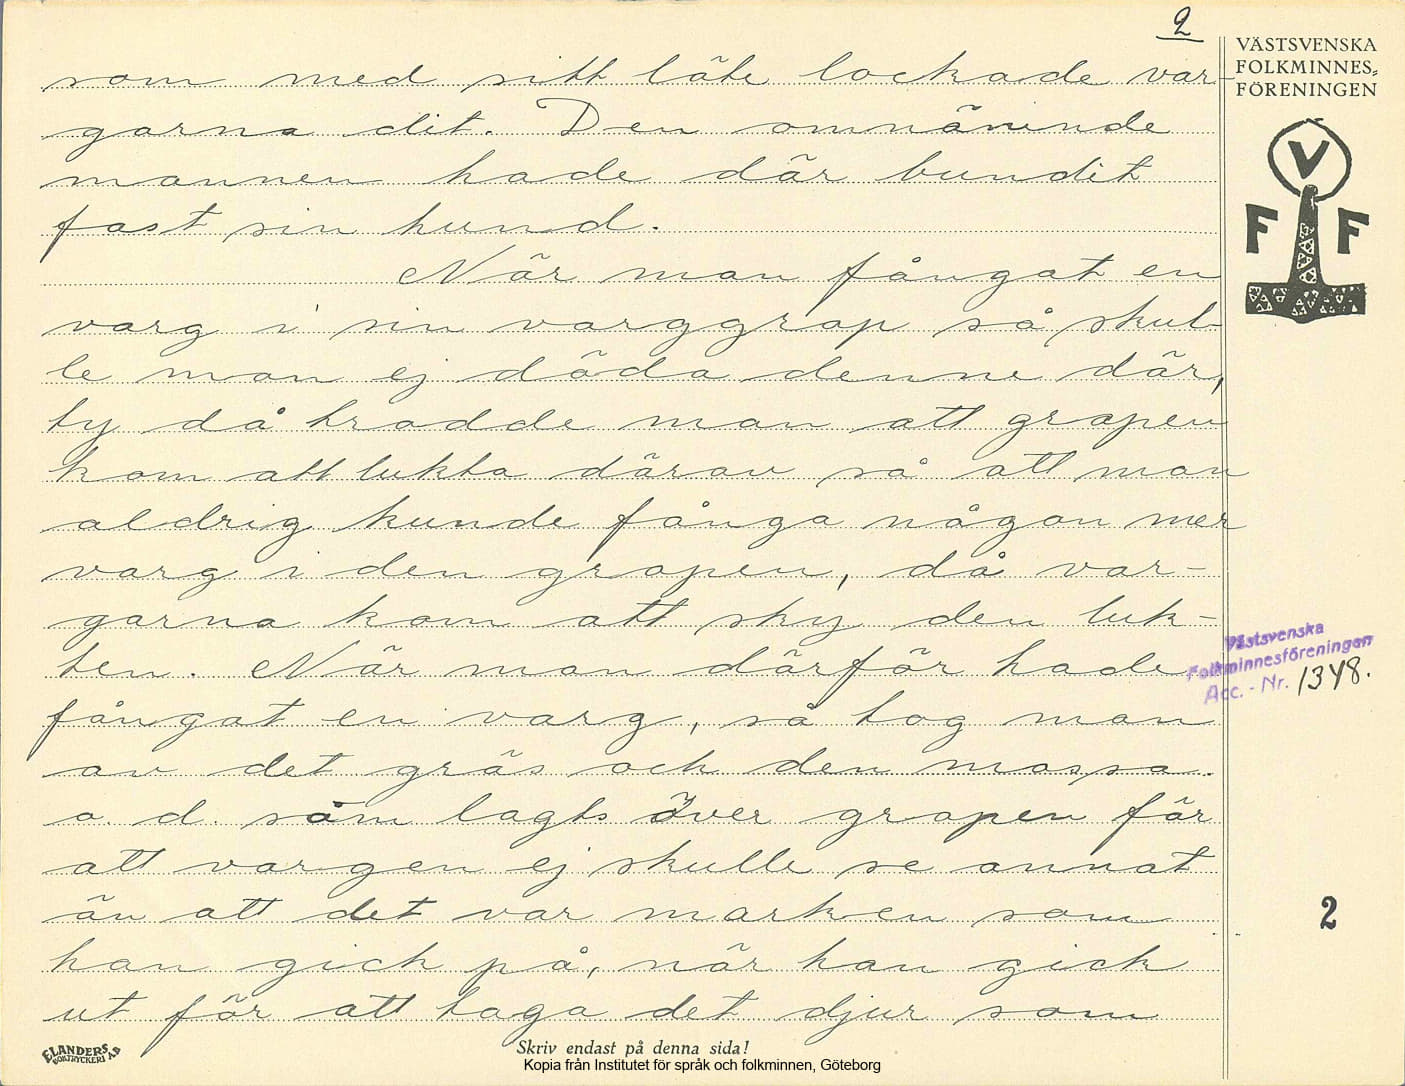 2
VÄSTSVENSKA
FOLKMINNES-
FÖRENINGEN
V
F F
som med sitt läte lockade var-
garna dit. Den omnämnde
mannen hade där bundit
fast sin hund.
När man fångat en
varg i sin varggrop så skul-
le man ej döda denne där,
ty då trodde man att gropen
kom att lukta därav så att man
aldrig kunde fånga någon mer
varg i den gropen, då var-
garna kom att sky den luk-
ten. När man därför hade
fångat en varg, så tog man
av det gräs och den mossa
o. d. som lagts över gropen för
att vargen ej skulle se annat
än att det var marken som
han gick på, när han gick
ut för att taga det djur som
Västsvenska
Folkminnesföreningen
Acc. - Nr. 1348.
2
ELANDERS
BOKTRYCKERI AB
Skriv endast på denna sida!
Kopia från Institutet för språk och folkminnen, Göteborg